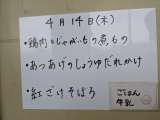 4月14日(木)
・鶏肉とじゃがいもの煮もの
・あつあげのしょうゆだれかけ
・紅ざけそぼろ
ごはん
牛乳